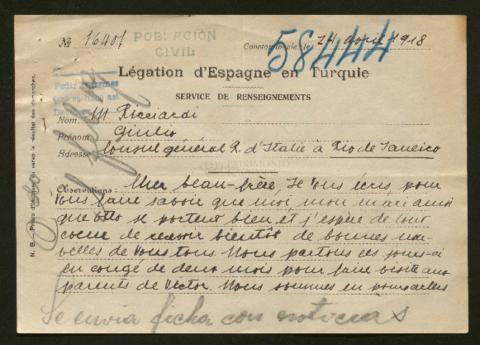 № 16401
POBLACIÓN
CIVIL
Constantinople, le 24 avril 1918
58444
Légation d'Espagne en Turquie
SERVICE DE RENSEIGNEMENTS
Nom: M Ricciardi
Prénom: Giulio
Adresse: Consul général R. d'Italie à Rio de Janeiro
Observations: Mon beau-frère, Je vous écris pour
vous faire savoir que moi, mon mari ainsi
que Otto se portent bien et j'espère de tout
coeur de recevoir bientôt de bonnes nou-
velles de vous tous. Nous partons ces jours-ci
en congé de deux mois pour faire visite aux
parents de Victor. Nous sommes en pourparlers
Se envia ficha con noticias